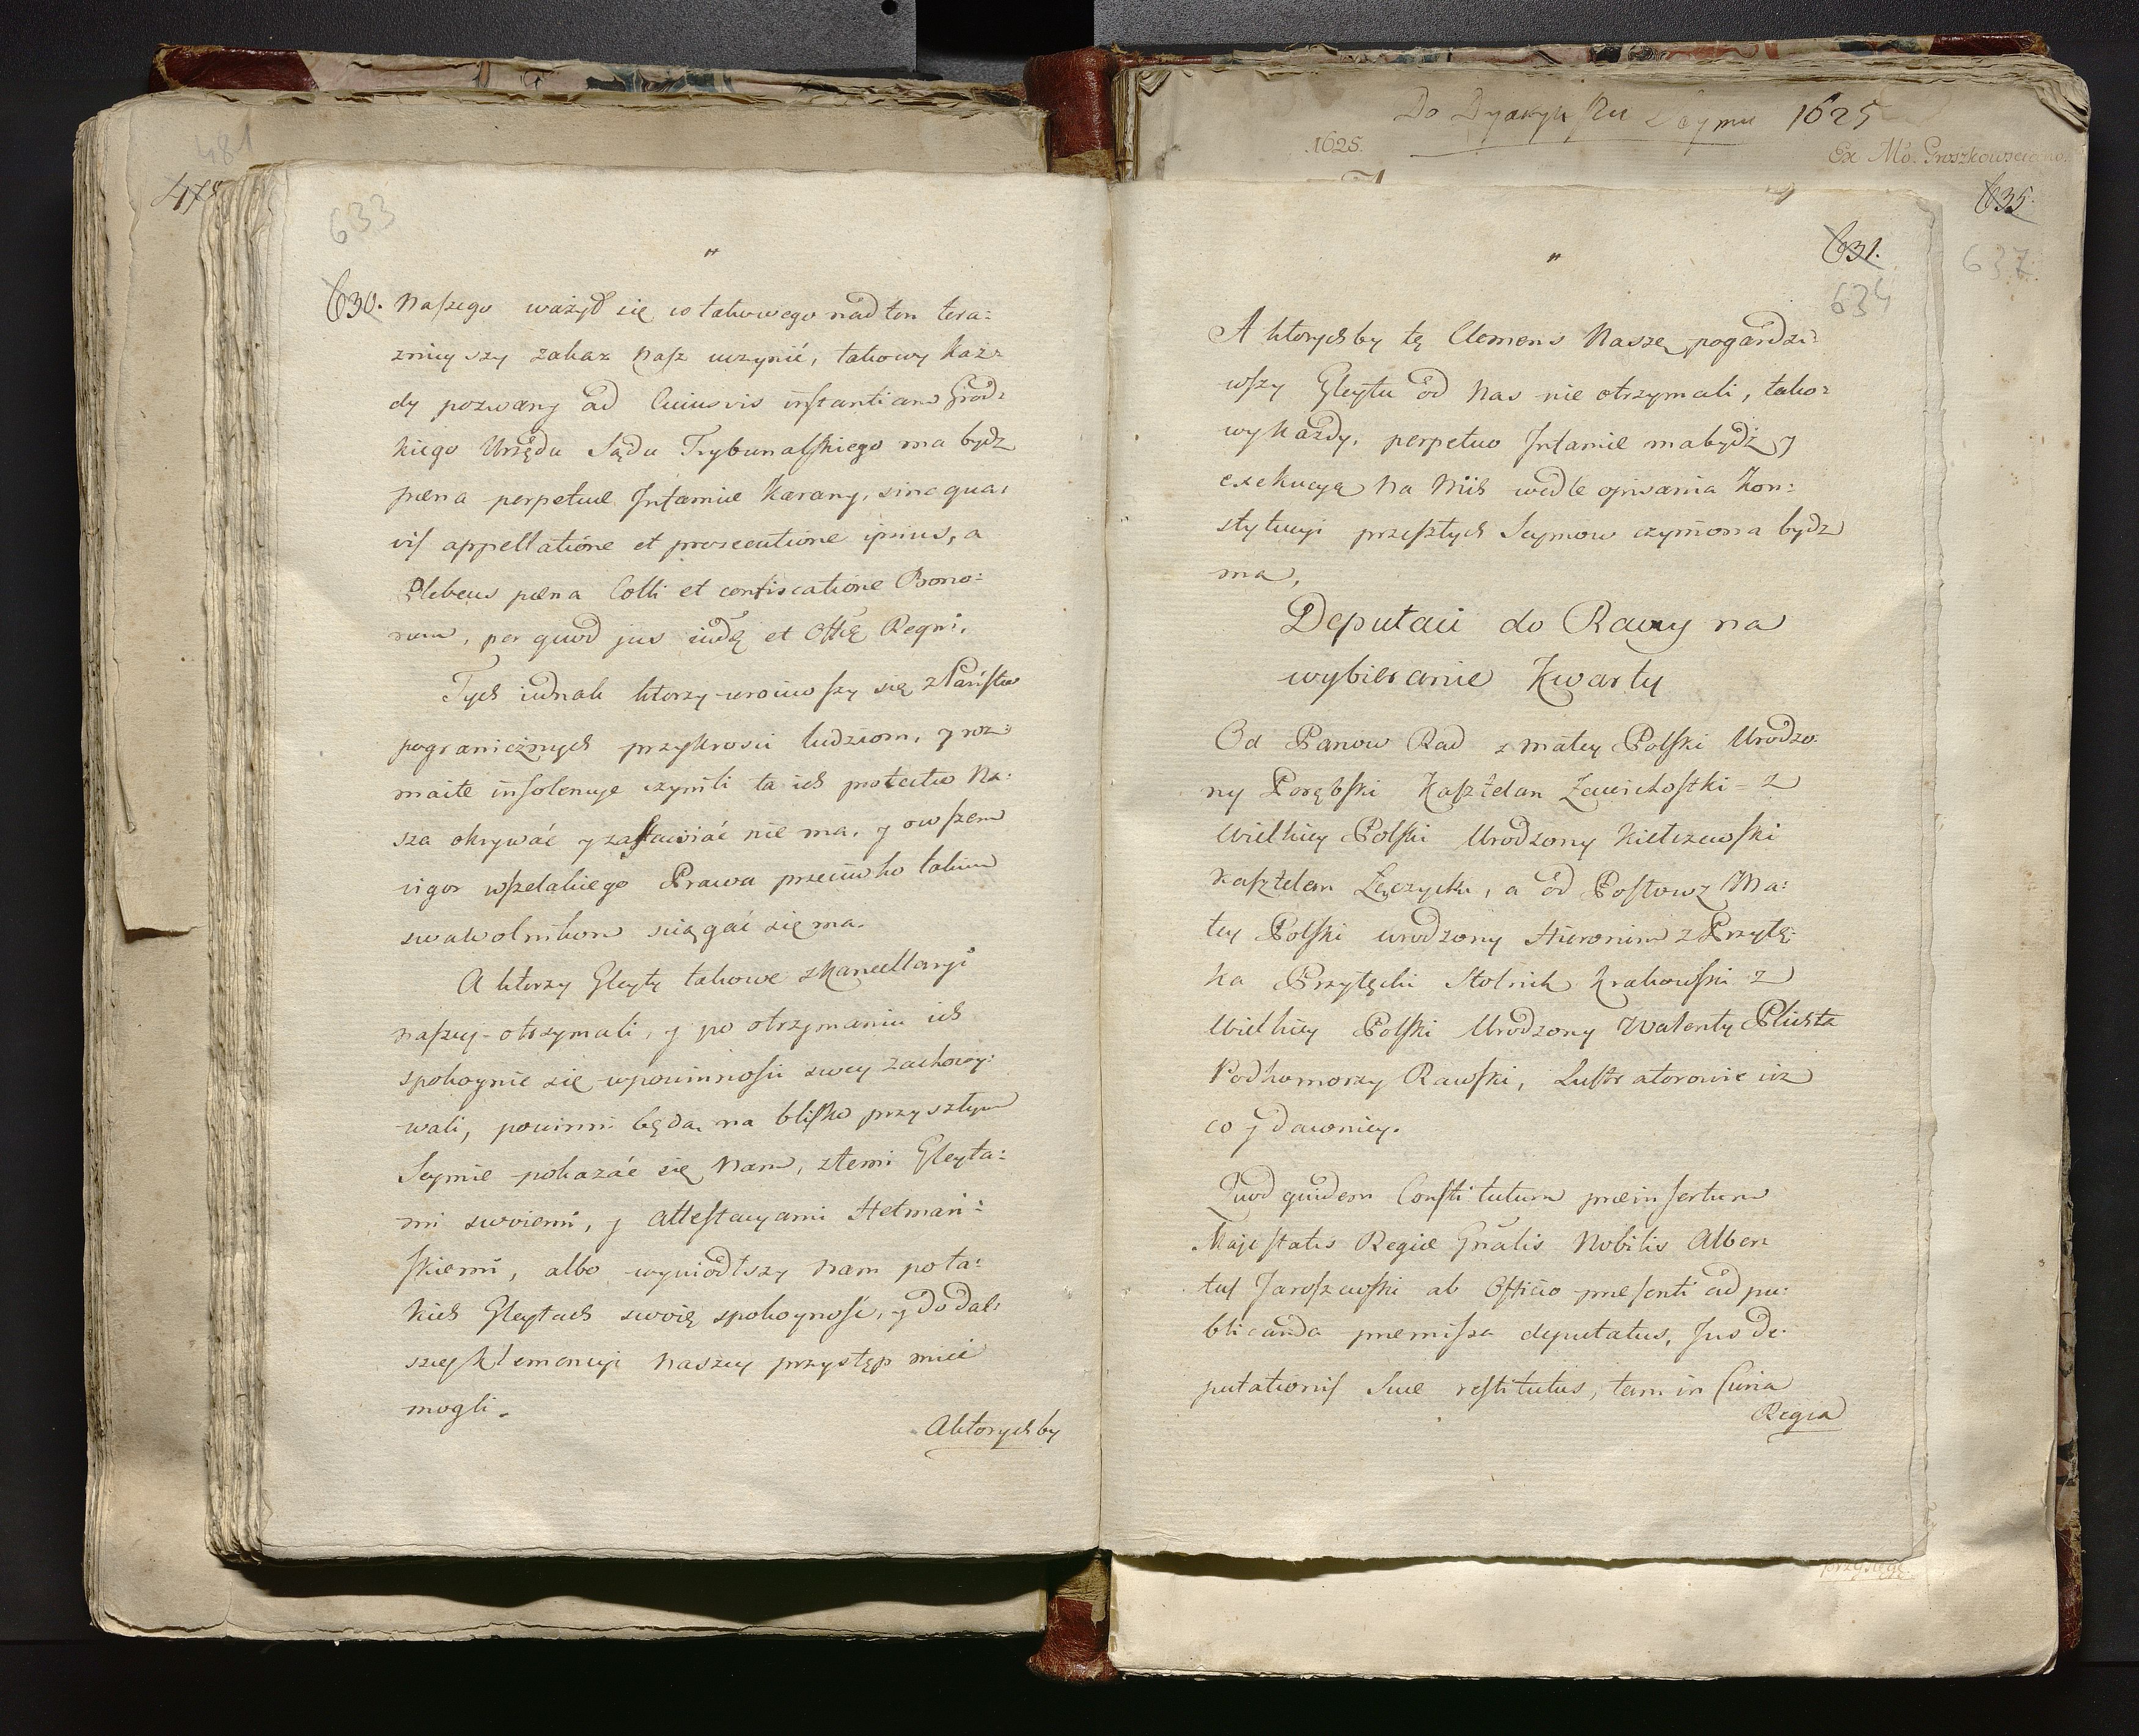 481
478
633
630. naszego ważył się co takowego nad ten tera:
znieyszy zakaz nasz uczynić, takowy każ:
dy pozwany ad cuiusvis instantiam Grod:
kiego Urzędu Sądu Trybunalskiego ma bydz
pæna perpetuæ Infamiæ karany, sine qua:
vis appellatióne et prosecutióne ipsius, a
Plebeus pæna Colli et confiscatióne Bono:
rum, per quod jus
Regni.
Tych iednak ktorzy wrociwszy się z Państw
pogranicznych przykrosci ludziom, y roz:
maite insolencye czynili ta ich protectia Na:
sza okrywać y zastawiać nie ma, y owszem
vigor wszelakiego Prawa przeciwko takim
swawolnikom sciągać się ma.
A ktorzy Gleyty takowe z Kancellaryi
naszey otrzymali, y po otrzymaniu ich
spokoynie się w powinnosci swey zachowy:
wali, powinni będą na blisko przyszłym
Seymie pokazać się Nam, z temi Gleyta:
mi swoiemi, y attestacyami Hetmań:
skiemi, albo wywiodłszy Nam po ta:
kich Gleytach swoię spokoyność, y do dal:
szey Klemencyi Naszey przystęp mieć
mogli.
Aktorychby
Do Seymu 1625
1625.
Ex Mo. Groszkowsciano.
635.
637.
631.
634
A ktorychby tę Clemens Naszę pogardzi:
wszy Gleytu od Nas nie otrzymali, tako:
wy każdy, perpetuo Infamie ma bydź y
exekucya na Nich wedle opisania Kon:
stytucyi przeszłych Seymow czyniona bydz
ma,
Deputaci do Rawy na
wybieranie Kwarty
Od Panow Rad z małey Polski Urodzo:
ny Porębski Kasztelan Zawichostki = z
Wielkiey Polski Urodzony Kiełczewski
Kasztelan Łęczycki, a od Posłow z Ma:
łey Polski urodzony Hieronim z Przyłę:
ka Przyłęcki Stolnik Krakowski z
Wielkiey Polski Urodzony Walenty Plichta
Podkomorzy Rawski, Lustratorowie ciż
co y dawniey.
Quod quidem Constitutum præinsertum
Majestatis Regiæ Gnalis Nobilis Alber:
tus Jaroszewski ab Officio præsenti ad pu:
blicanda præmissa deputatus, Jus de:
putationis suæ restitutus, tam in Curia
Regia
przysięgę